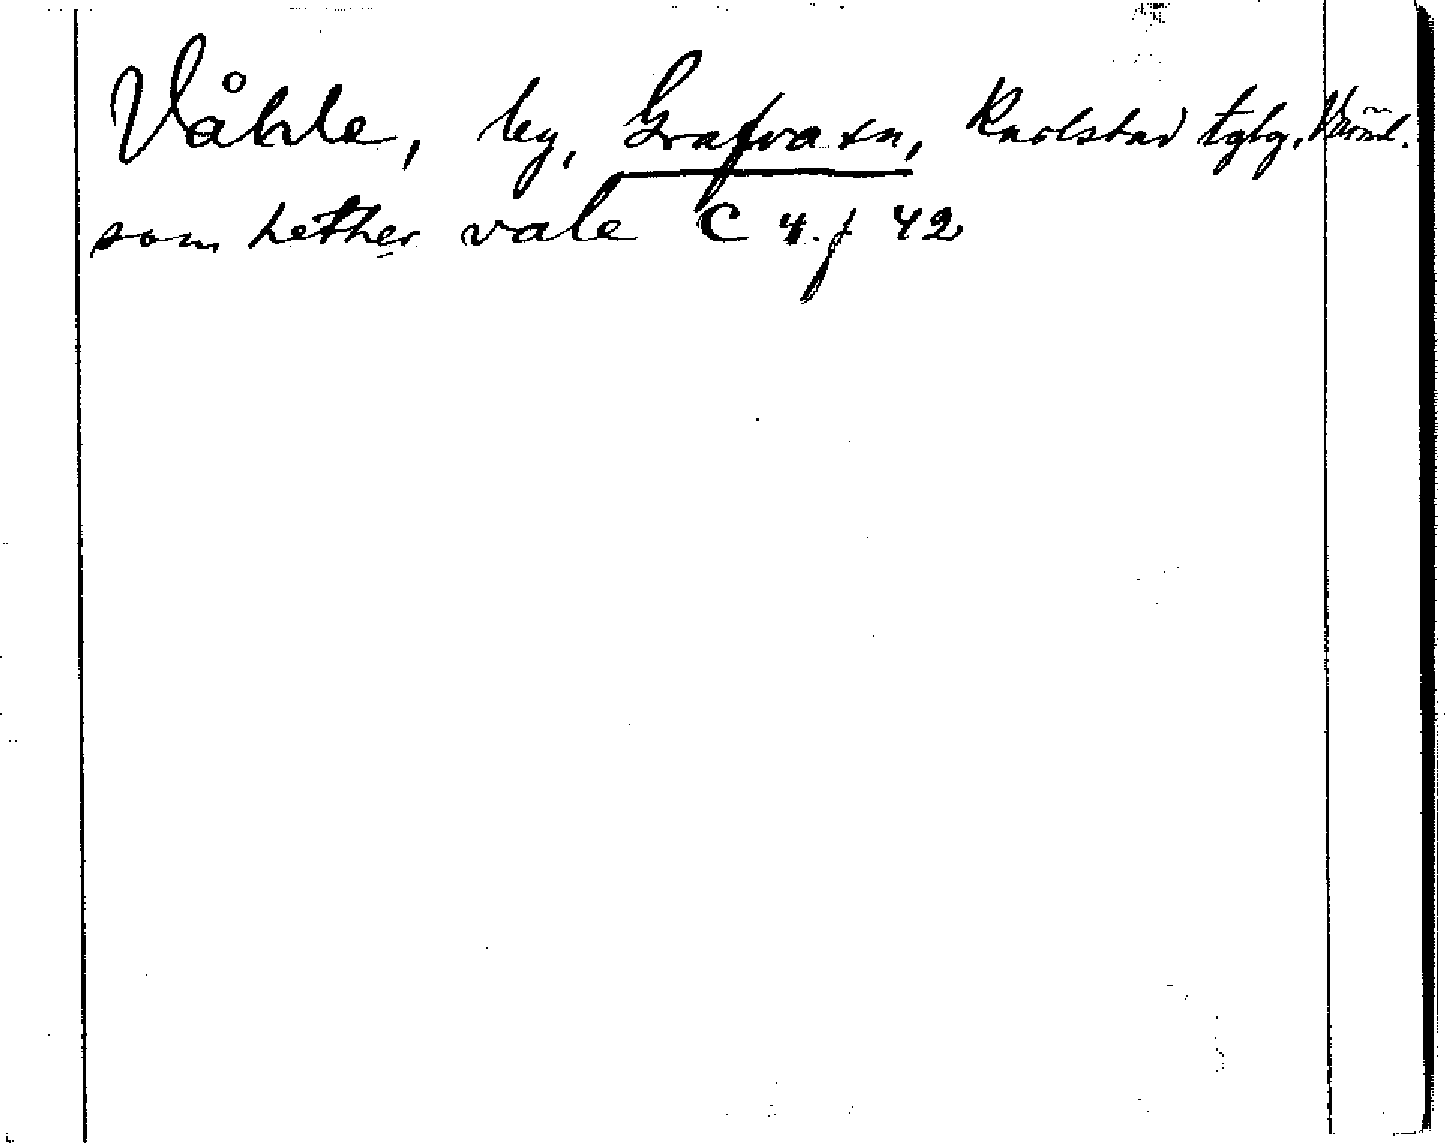 Våhle, by, Grafva sn, Karlstad tgbg. Värml.
som hether vale C 4. f 42